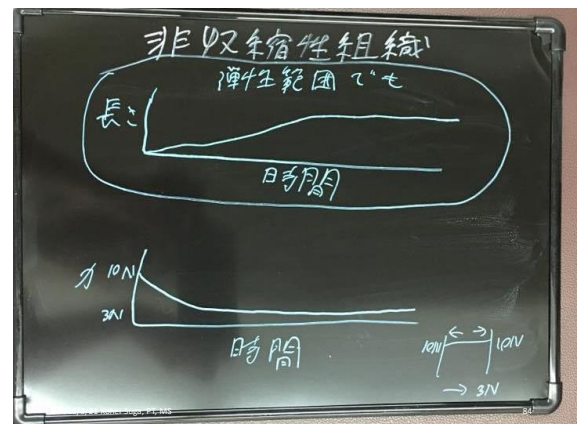 非収縮性組織
弾性範囲でも
長さ
時間
力 10N
3N
時間
10N 10N
→ 3N
PT, MS
84